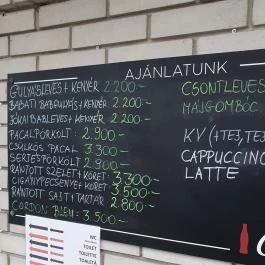 AJÁNLATUNK
GULYÁSLEVES + KENYÉR 2.200.-
BABATI BABGULYÁS + KENYÉR 2.200.-
JÓKAI BABLEVES + KENYÉR 2.200.-
PACALPÖRKÖLT: 2.900.-
CSÜLKÖS PACAL 3.300
SERTÉSPÖRKÖLT 2.900.-
RÁNTOTT SZELET + KÖRET 3.300-
CIGÁNYPECSENYE + KÖRET 3.500-
RÁNTOTT SAJT + TARTÁR 2.800-
CORDON BLEU: 3.500-
CSONTLEVES
MÁJGOMBÓC
KV (+TEJ, TEJ
CAPPUCCINO
LATTE
WC
TOILET
TOILETTE